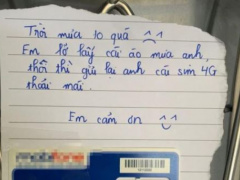 Trời mưa to quá ^_^
Em lỡ lấy cái áo mưa anh,
thôi thì gửi lại anh cái sim 4G
thoải mái.
Em cám ơn ^_^